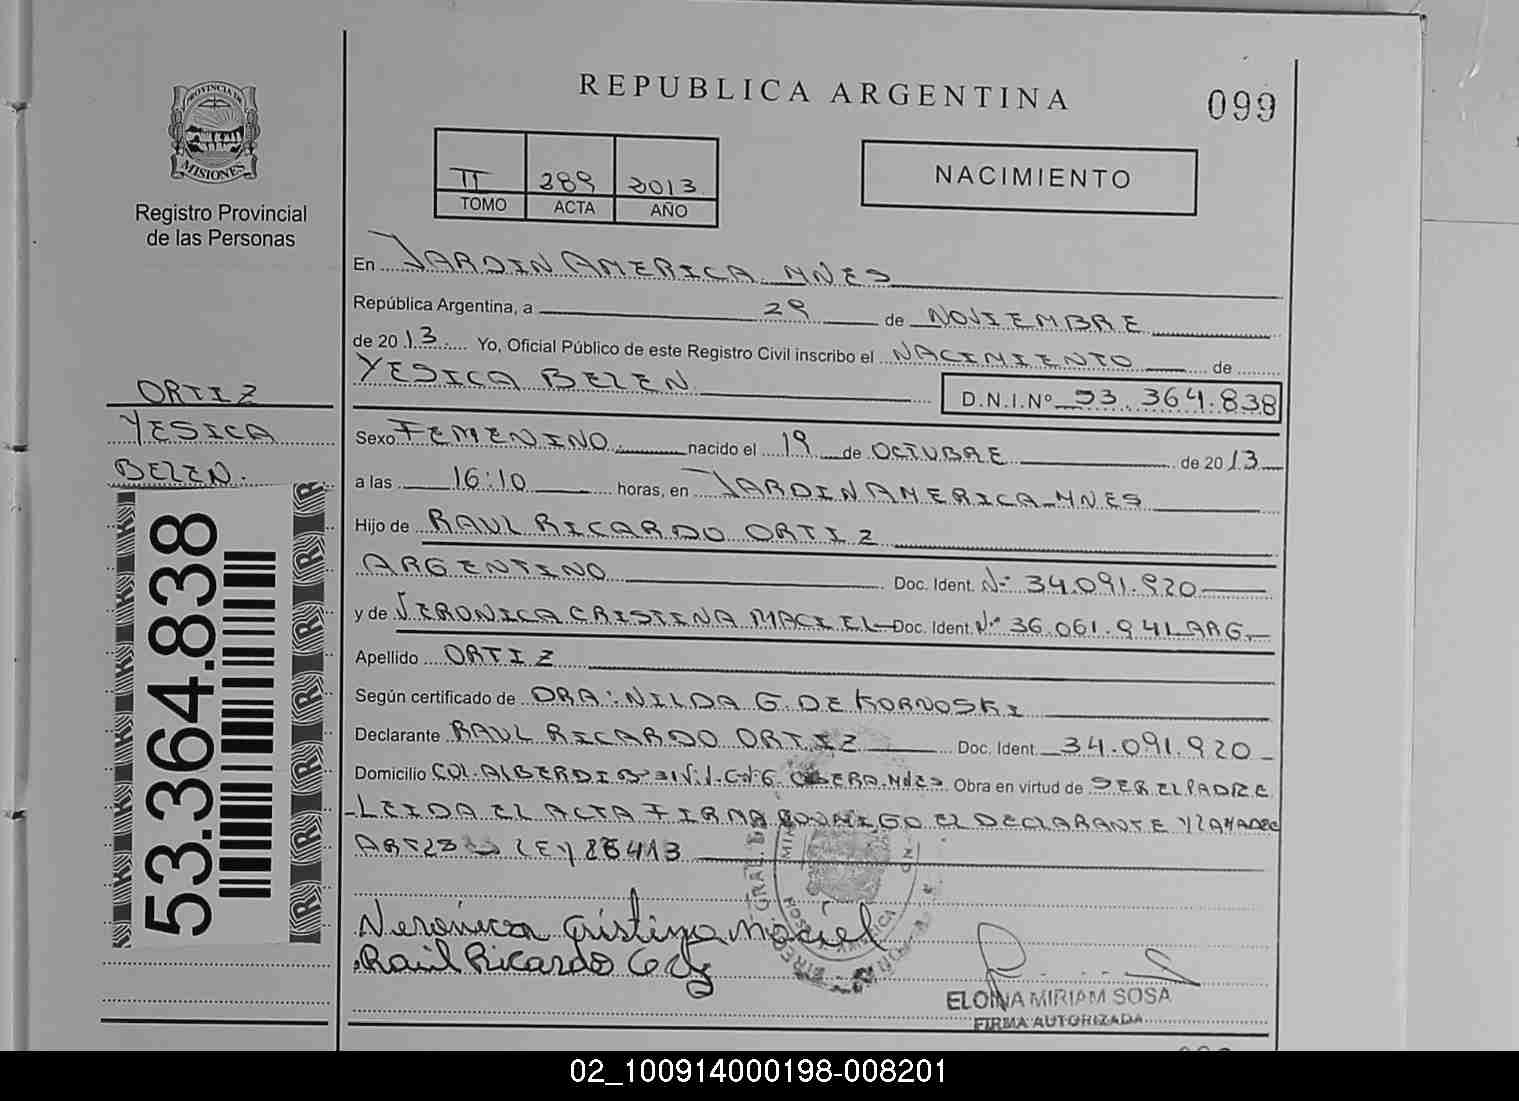 REPUBLICA ARGENTINA
099
PROVINCIA DE
MISIONES
Registro Provincial
de las Personas
II 289 2013
TOMO ACTA AÑO
NACIMIENTO
En JARDIN AMERICA MNES
República Argentina, a 29 de NOVIEMBRE
de 2013 Yo, Oficial Público de este Registro Civil inscribo el NACIMIENTO de
YESICA BELEN D.N.I.Nº 53.364.838
ORTIZ
YESICA
BELEN.
53.364.838
Sexo FEMENINO nacido el 19 de OCTUBRE de 2013
a las 16:10 horas, en JARDIN AMERICA-MNES
Hijo de RAUL RICARDO ORTIZ
ARGENTINO Doc. Ident. Nº 34.091.920
y de VERONICA CRISTINA MACIEL Doc. Ident. Nº 36.061.941 ARG.
Apellido ORTIZ
Según certificado de DRA: NILDA G DE KORNOSKI
Declarante RAUL RICARDO ORTIZ Doc. Ident. 34.091.920
Domicilio COL. ALBERDI OBERA. MNES Obra en virtud de SER EL PADRE
LEIDA EL ACTA FIRMA CONMIGO EL DECLARANTE Y LA MADRE
LEY 26413
Veronica Cristina Maciel
Raúl Ricardo
ELOINA MIRIAM SOSA
FIRMA AUTORIZADA
02_100914000198-008201